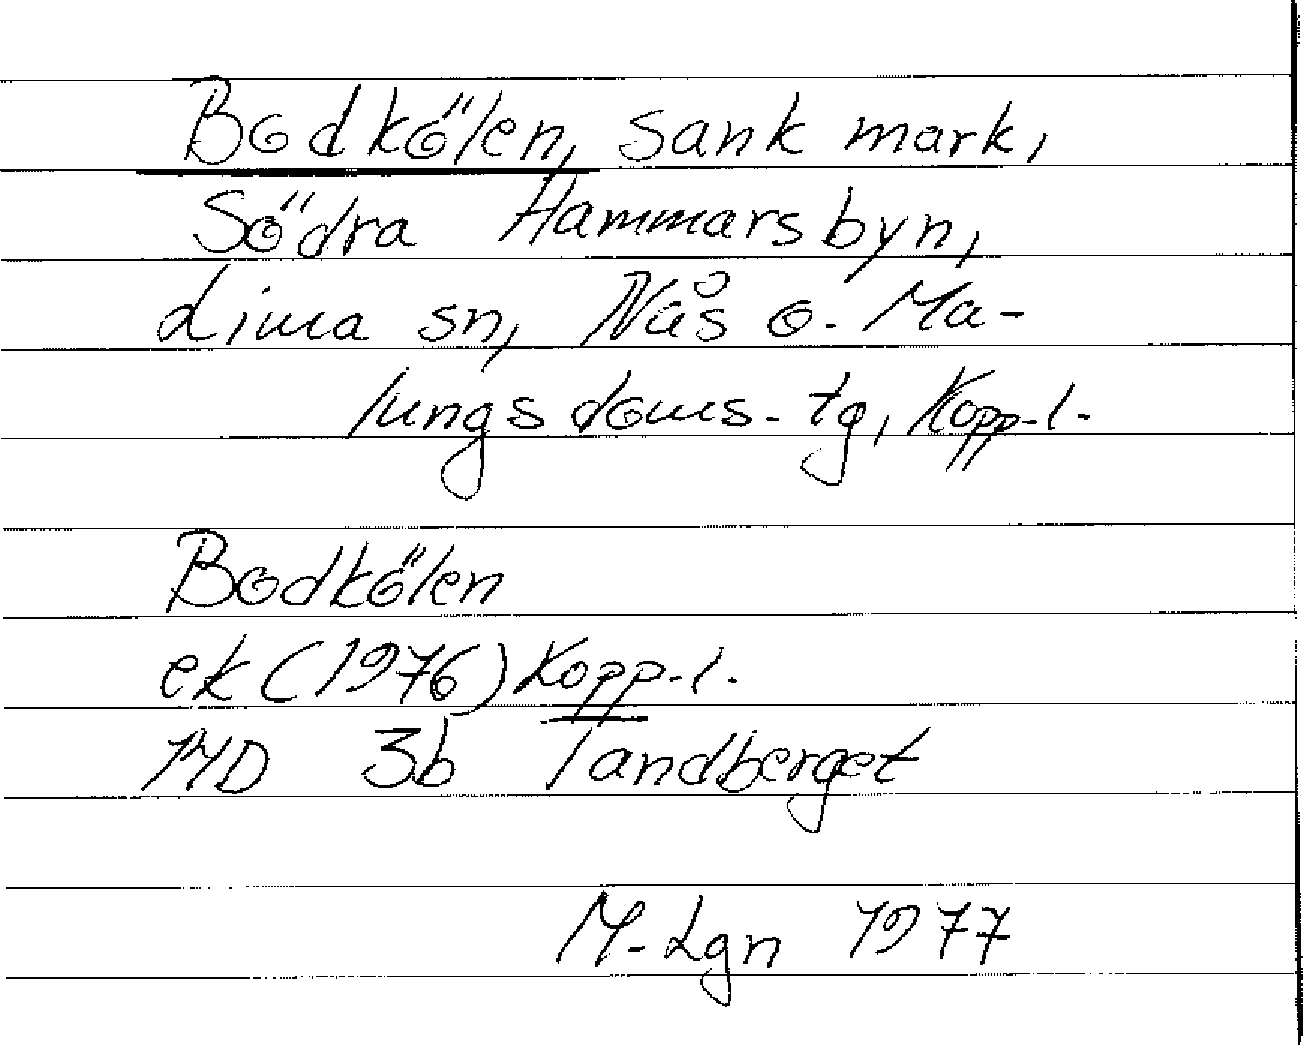 Bodkölen, sank mark,
Södra Hammarsbyn,
Lima sn, Nås o. Ma-
lungs doms. tg, Kopp.l.
Bodkölen
ek (1976) Kopp.l.
14D 3b Tandberget
M. Lgn 1977